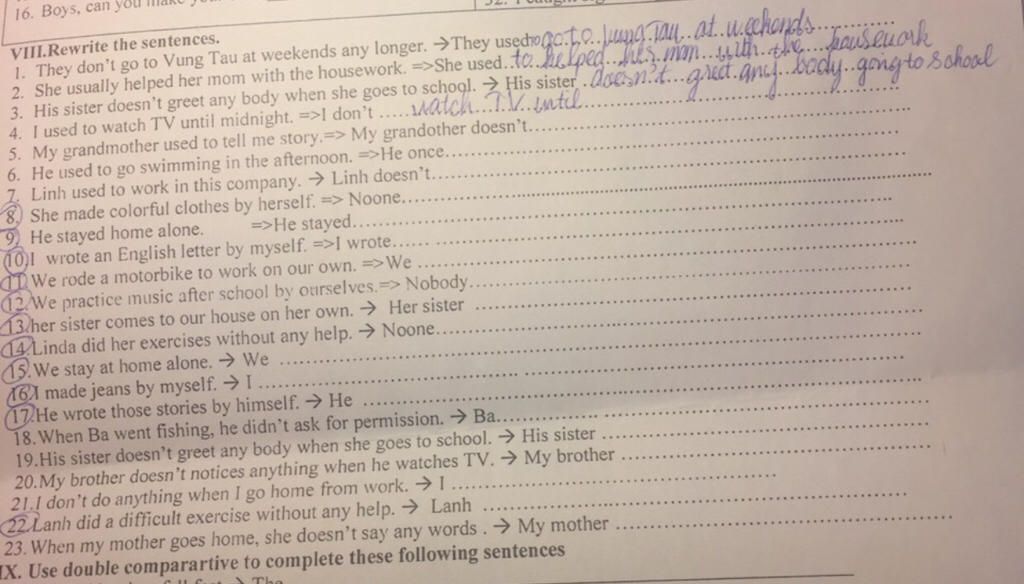 16. Boys, can you make
VIII.Rewrite the sentences.
1. They don't go to Vung Tau at weekends any longer. →They used to go to Vung Tau at weekends
2. She usually helped her mom with the housework. =>She used to helped her mom with the housework
3. His sister doesn't greet any body when she goes to school. → His sister doesn't greet any body going to school
4. I used to watch TV until midnight. =>I don't ..... watch TV until
5. My grandmother used to tell me story.=> My grandother doesn't
6. He used to go swimming in the afternoon. =>He once
7. Linh used to work in this company. → Linh doesn't
8. She made colorful clothes by herself. => Noone
9. He stayed home alone. =>He stayed
10)I wrote an English letter by myself. =>I wrote
11.We rode a motorbike to work on our own. =>We
12.We practice music after school by ourselves.=> Nobody
13.her sister comes to our house on her own. → Her sister
14.Linda did her exercises without any help. → Noone
15.We stay at home alone. → We
16.I made jeans by myself. → I
17.He wrote those stories by himself. → He
18.When Ba went fishing, he didn't ask for permission. → Ba
19.His sister doesn't greet any body when she goes to school. → His sister
20.My brother doesn't notices anything when he watches TV. → My brother
21.I don't do anything when I go home from work. → I
22.Lanh did a difficult exercise without any help. → Lanh
23.When my mother goes home, she doesn't say any words . → My mother
IX. Use double comparartive to complete these following sentences